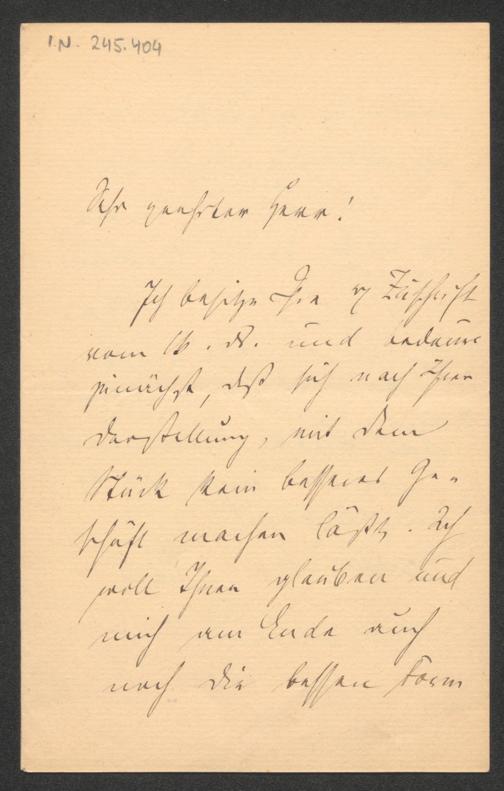 I.N. 245.404
Sehr geehrter Herr!
Ich besitze Ihre Zuschrift
vom 16. ds. und bedaure
zunächst, daß sich nach Ihrer
Darstellung, mit dem
Stück kein besseres Ge-
schäft machen läßt. Ich
will Ihnen glauben und
mich am Ende auch
noch die Form